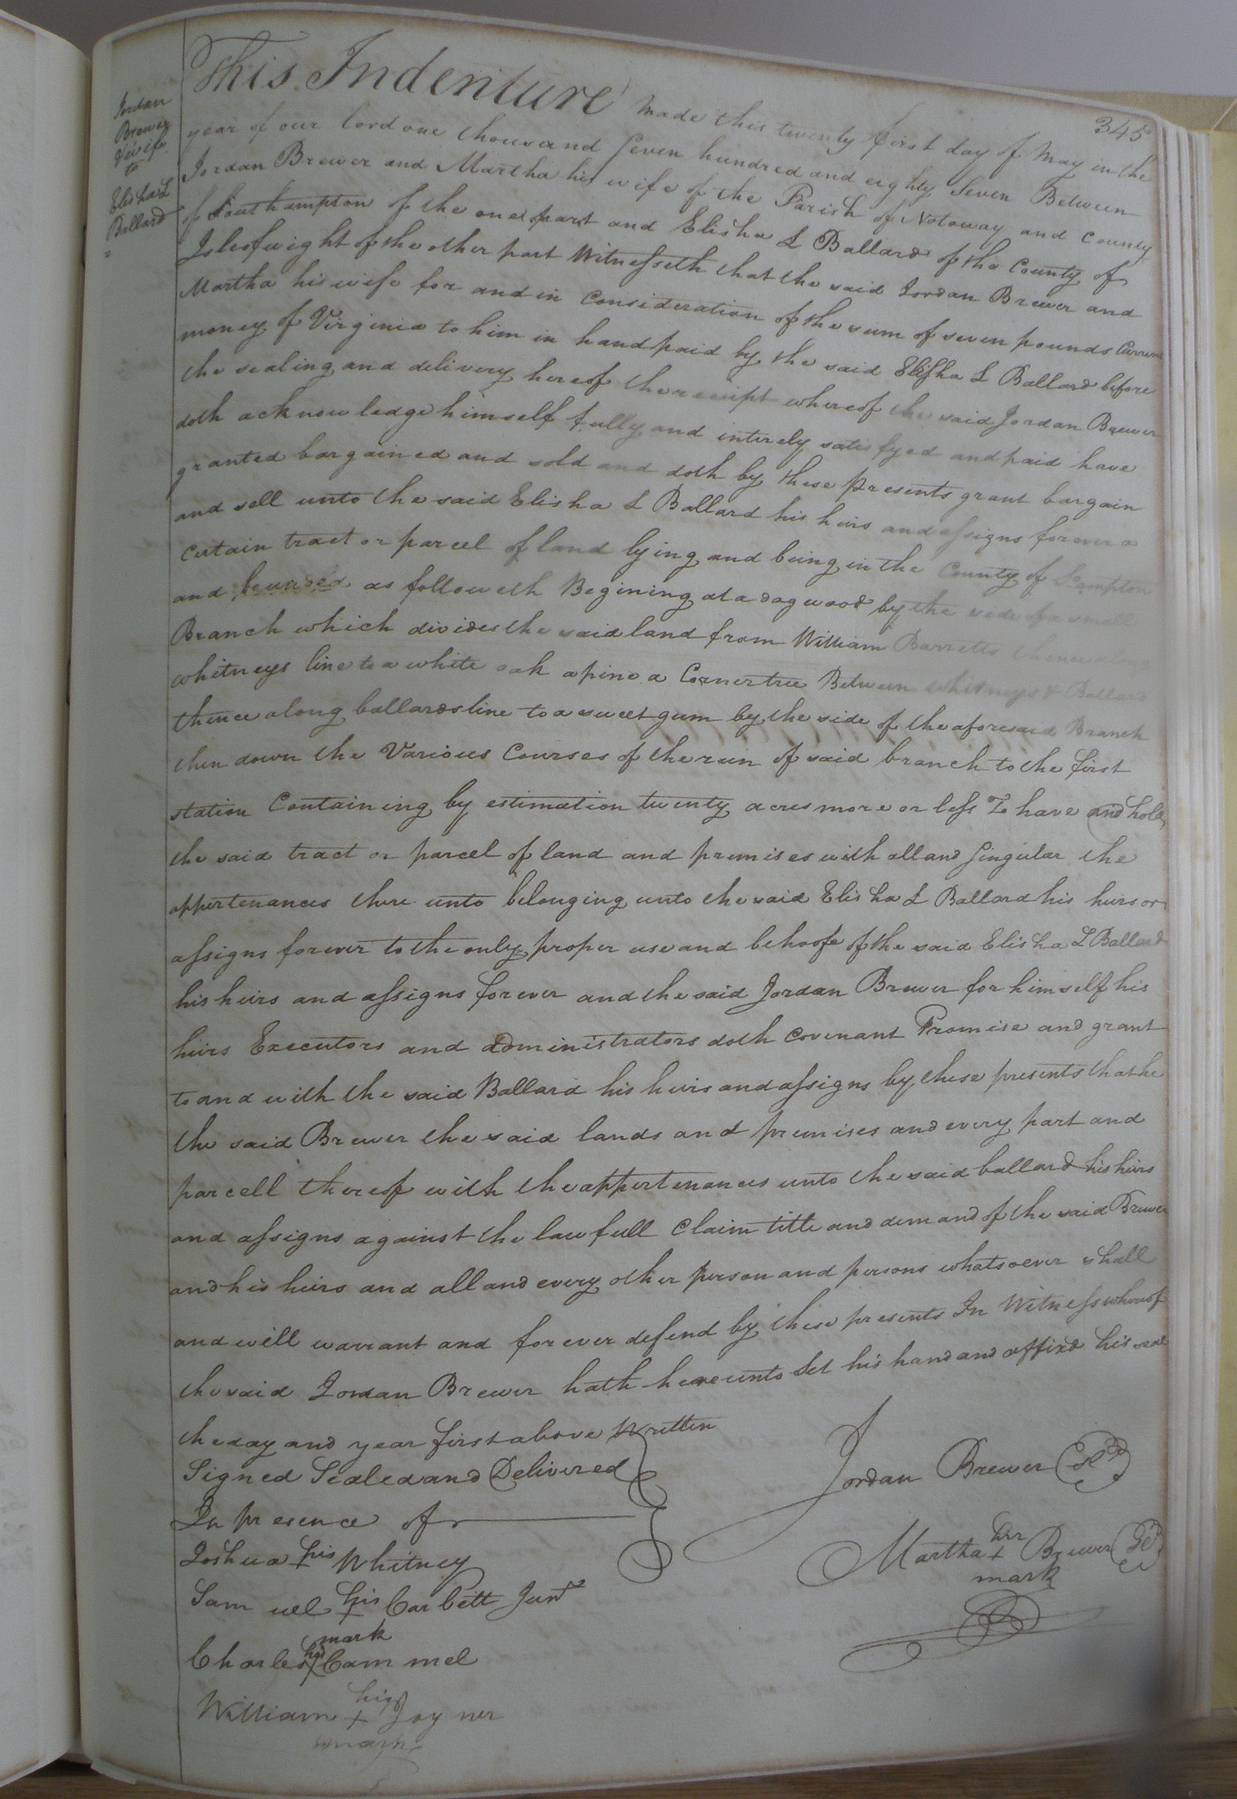 345
Jordan
Brewer
& wife
to
Elisha L
Ballard
This Indenture made this twenty first day of May in the
year of our lord one thousand Seven hundred and eighty Seven Between
Jordan Brewer and Martha his wife of the Parish of Notoway and County
of Southampton of the one part and Elisha L Ballard of the County of
Isleofwight of the other part Witnesseth that the said Jordan Brewer and
Martha his wife for and in Consideration of the sum of seven pounds Current
money of Virginia to him in hand paid by the said Elisha L Ballard before
the sealing and delivery hereof the receipt whereof the said Jordan Brewer
doth acknowledge himself fully and intirely satisfyed and paid have
granted bargained and sold and doth by these presents grant bargain
and sell unto the said Elisha L Ballard his heirs and assigns forever a
certain tract or parcel of land lying and being in the County of
and bounded as followeth Begining at a dogwood by the side of a small
Branch which divides the said land from William Barretts thence
whitneys line to a white oak a pine a Cornertree Between whitneys & Ballards
thence along ballards line to a sweet gum by the side of the aforesaid Branch
then down the Various Courses of the run of said branch to the first
station Containing by estimation twenty acres more or less To have and hold
the said tract or parcel of land and premises with all and Singular the
appertenances there unto belonging unto the said Elisha L Ballard his heirs or
assigns forever to the only proper use and behoofe of the said Elisha L Ballard
his heirs and assigns forever and the said Jordan Brewer for himself his
heirs Executors and administrators doth Covenant Promise and grant
to and with the said Ballard his heirs and assigns by these presents that he
the said Brewer the said lands and premises and every part and
parcell thereof with the appertenances unto the said ballard his heirs
and assigns against the lawfull Claim title and demand of the said Brewer
and his heirs and all and every other person and persons whatsoever shall
and will warrant and forever defend by these presents In Witness whereof
the said Jordan Brewer hath hereunto Set his hand and affixd his seal
the day and year first above Written
Signed Sealed and Delivered
In presence of
Jordan Brewer
Joshua his Whitney
Martha her + Brewer
mark
Samuel his + Corbett Junr
mark
Charles his Cammel
William his + Joyner
mark